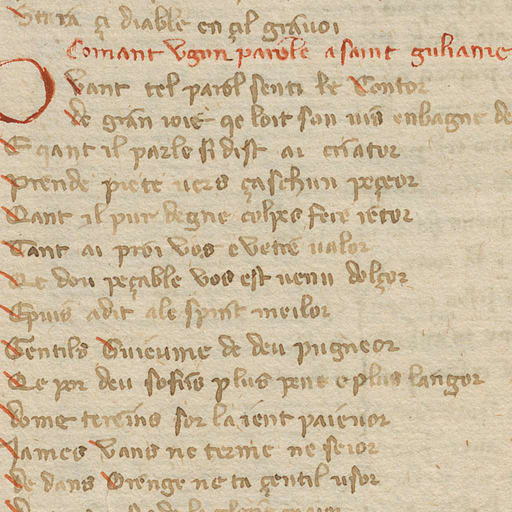 Verra çi diable en çil gravoi
Comant Vgun parole a saint guliame
Vant tel parol senti le Contor
de gran ioie qe loit son uis en bagne de
E qant il parle si dist au criator
prende piete uers çaschun peçeor
Qant il pur degne colpes fere
Tant ai proi vos e vetre ualor
Qe dou peçable vos est uenu dolçor
Epuis a dit ale spirit meilor
Gentils Guieume de deu pugneor
Qe por deu sofris plus pene e plus langor
dome tereins sor la ient paienor
James Vans ne terme ne seior
de dans Orenge ne ta gentil usor